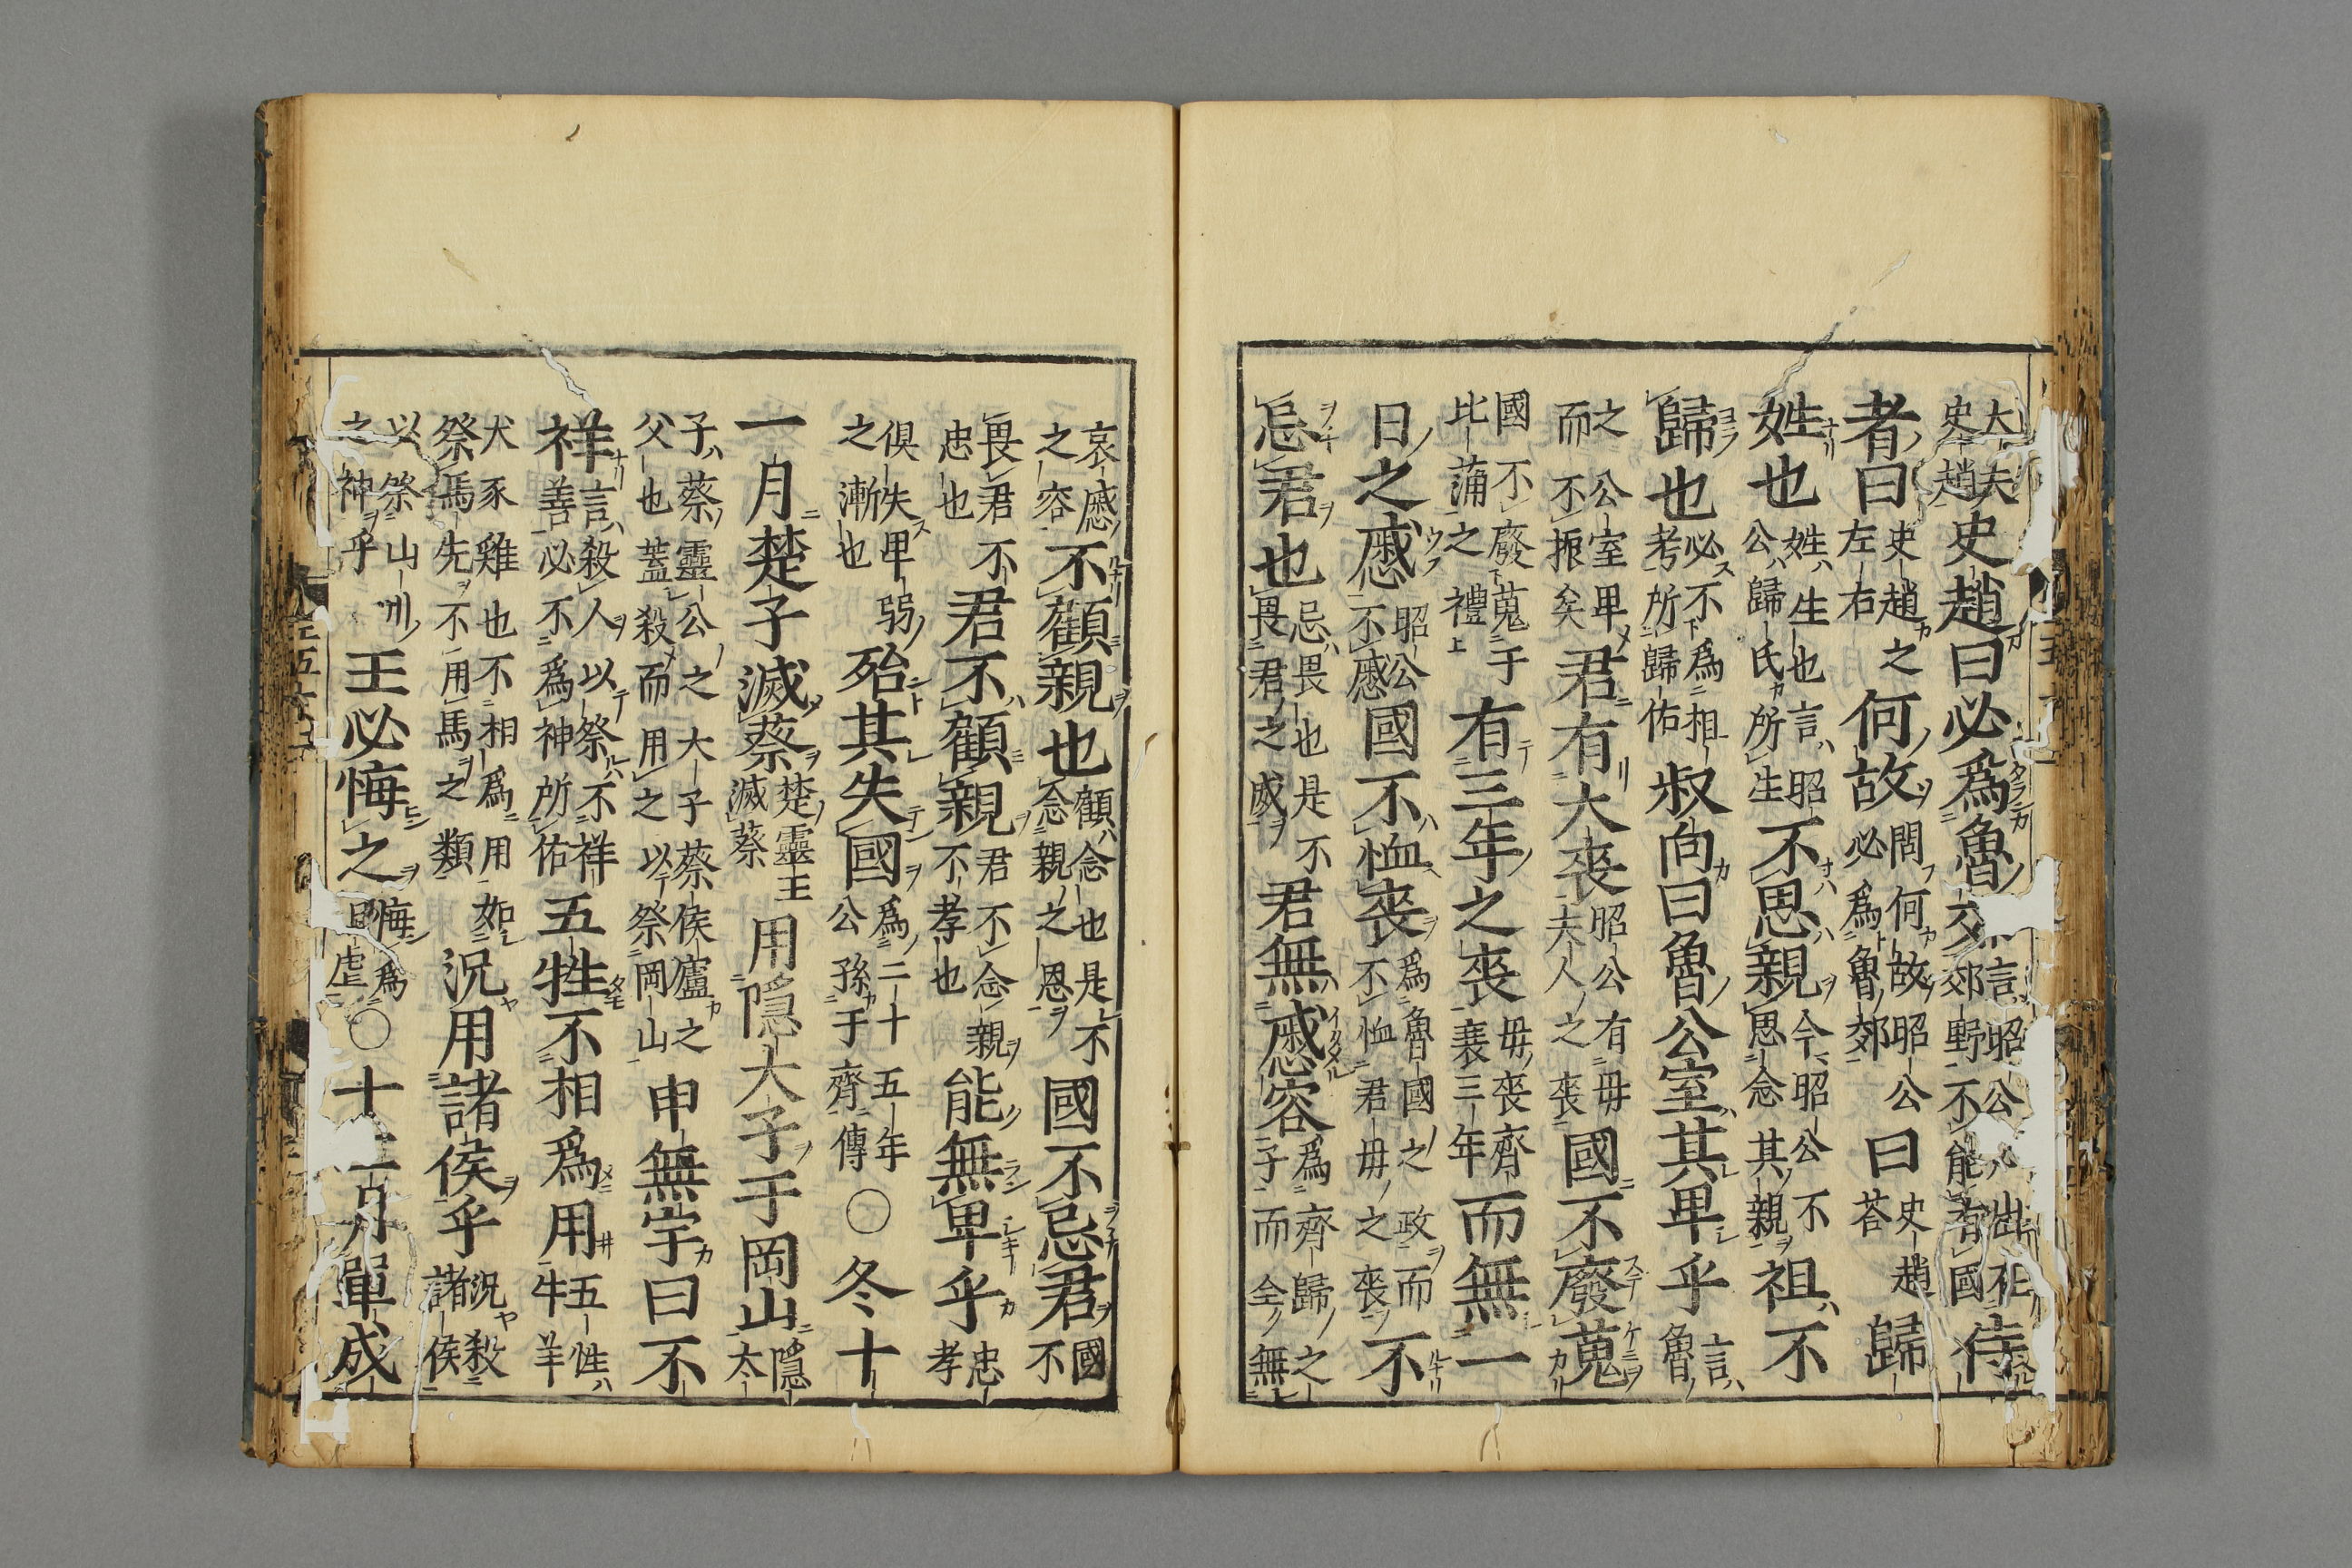 大夫史趙史趙曰必爲魯郊言昭公必出在郊野不能有國侍
者曰史趙之左右何故問何故昭公必爲魯郊曰史趙荅歸
姓也姓生也言昭公歸氏所生不思親今昭公不思念其親祖不
歸也必不爲祖考所歸佑叔向曰魯公室其卑乎言魯
之公室卑而不振矣君有大喪昭公有毋夫人之喪國不廢蒐
國不廢蒐于比蒲之禮有三年之喪毋喪齊衰三年而無一
日之慼昭公不慼國不恤喪爲魯國之政而不恤君毋之喪不
忌君也忌畏也是不畏君之威君無慼容爲齊歸之子而全無
哀慼之容不顧親也顧念也是不念親之恩國不忌君國不
畏君不忠也君不顧親君不念親不孝也能無卑乎忠孝
俱失卑弱之漸也殆其失國爲二十五年公孫于齊傳〇冬十
一月楚子滅蔡楚靈王滅蔡用隱大子于岡山隱太
子蔡靈公之大子蔡侯廬之父也蓋殺而用之以祭岡山申無宇曰不
祥言殺人以祭不祥善必不爲神所佑五牲不相爲用五牲牛羊
犬豕雞也不相爲用如祭馬先不用馬之類況用諸侯乎況殺諸侯
以祭山川之神乎王必悔之悔爲虐〇十二月單成